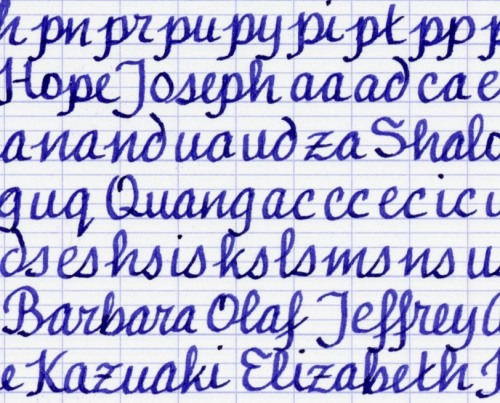 h pn pr pu py pi pt pp p
Hope Joseph a a a d c a e
a n a n d u a u d z a Shalo
g u q Quang a c c c e c i c u
d s e s h s i s k s l s m s n s u
Barbara Olaf Jeffrey
e Kazuaki Elizabeth